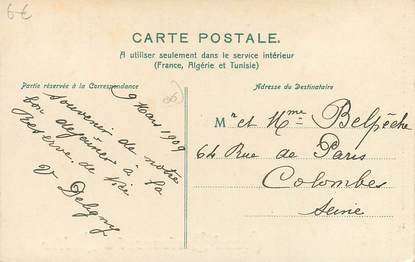 6€
CARTE POSTALE.
A utiliser seulement dans le service intérieur
(France, Algérie et Tunisie)
Partie réservée à la Correspondance
Adresse du Destinataire
9 Mars 1909
Souvenir de notre
bon dejeuner à la
Réserve de Nice
V Deligny
Mr et Mme Belpêche
64 Rue de Paris
Colombes
Seine